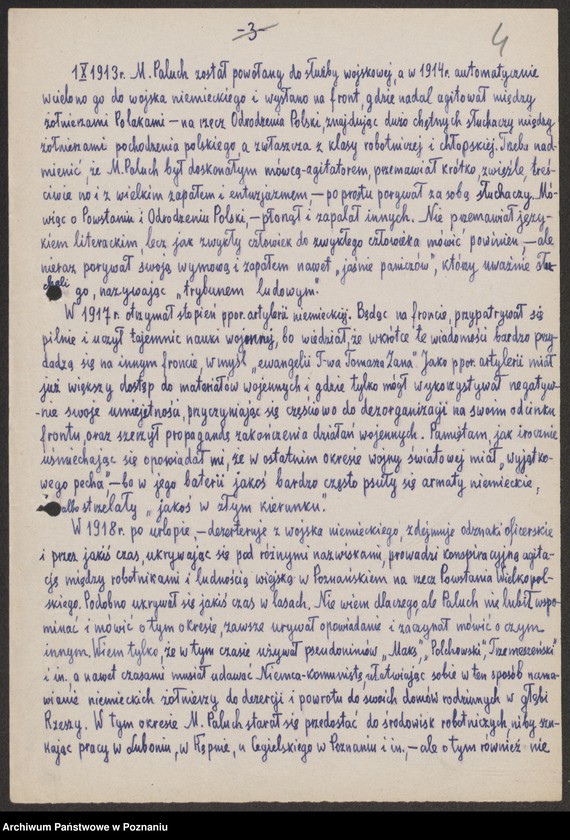 -3-
4
1 X 1913 r. M. Paluch został powołany do służby wojskowej, a w 1914 r. automatycznie
wcielono go do wojska niemieckiego i wysłano na front, gdzie nadal agitował między
żołnierzami Polakami — na rzecz Odrodzenia Polski, znajdując dużo chętnych słuchaczy między
żołnierzami pochodzenia polskiego, a zwłaszcza z klasy robotniczej i chłopskiej. Trzeba nad-
mienić, że M. Paluch był doskonałym mówcą-agitatorem, przemawiał krótko, zwięźle, treś-
ciwie no i z wielkim zapałem i entuzjazmem, — po prostu porywał za sobą słuchaczy. Mó-
wiąc o Powstaniu i Odrodzeniu Polski, — płonął i zapalał innych. Nie przemawiał języ-
kiem literackim, lecz jak zwykły człowiek do zwykłego człowieka mówić powinien, — ale
nieraz porywał swoją wymową i zapałem nawet „jaśnie paniczów", którzy uważnie słu-
chali go, nazywając „trybunem ludowym".
W 1917 r. otrzymał stopień ppor. artylerii niemieckiej. Będąc na froncie, przypatrywał się
pilnie i uczył tajemnic nauki wojennej, bo wiedział, że wkrótce te wiadomości bardzo przy-
dadzą się na innym froncie, w myśl „ewangelii T-wa Tomasza Zana". Jako ppor. artylerii miał
już większy dostęp do materiałów wojennych i gdzie tylko mógł wykorzystywał negatyw-
-nie swoje umiejętności, przyczyniając się częściowo do dezorganizacji na swoim odcinku
frontu, oraz szerzył propagandę zakończenia działań wojennych. Pamiętam, jak ironicznie
uśmiechając się opowiadał mi, że w ostatnim okresie wojny światowej miał „wyjątko-
wego pecha", — bo w jego baterii jakoś bardzo często psuły się armaty niemieckie,
albo strzelały „jakoś w złym kierunku".
W 1918 r. po urlopie, — dezerteruje z wojska niemieckiego, zdejmuje odznaki oficerskie
i przez jakiś czas, ukrywając się pod różnymi nazwiskami, prowadzi konspiracyjną agita-
cję między robotnikami i ludnością wiejską w Poznańskiem na rzecz Powstania Wielkopol-
-skiego. Podobno ukrywał się jakiś czas w lasach. Nie wiem dlaczego, ale Paluch nie lubił wspo-
minać i mówić o tym okresie, zawsze urywał opowiadanie i zaczynał mówić o czym
innym. Wiem tylko, że w tym czasie używał pseudonimów „Maks", „Polchowski", „Trzemeszeński"
i in., a nawet czasami musiał udawać Niemca-komunistę, ułatwiając sobie w ten sposób nama-
wianie niemieckich żołnierzy do dezercji i powrotu do swoich domów rodzinnych w głębi
Rzeszy. W tym okresie M. Paluch starał się przedostać do środowisk robotniczych, niby szu-
kając pracy w Luboniu, w Kępnie, u Cegielskiego w Poznaniu i in., — ale o tym również nie
Archiwum Państwowe w Poznaniu